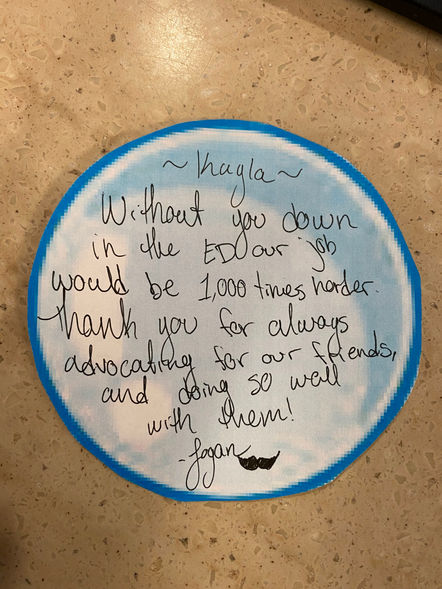 ~ Khayla ~
Without you down
in the ED our job
would be 1,000 times harder.
Thank you for always
advocating for our friends,
and doing so well
with them!
-Logan